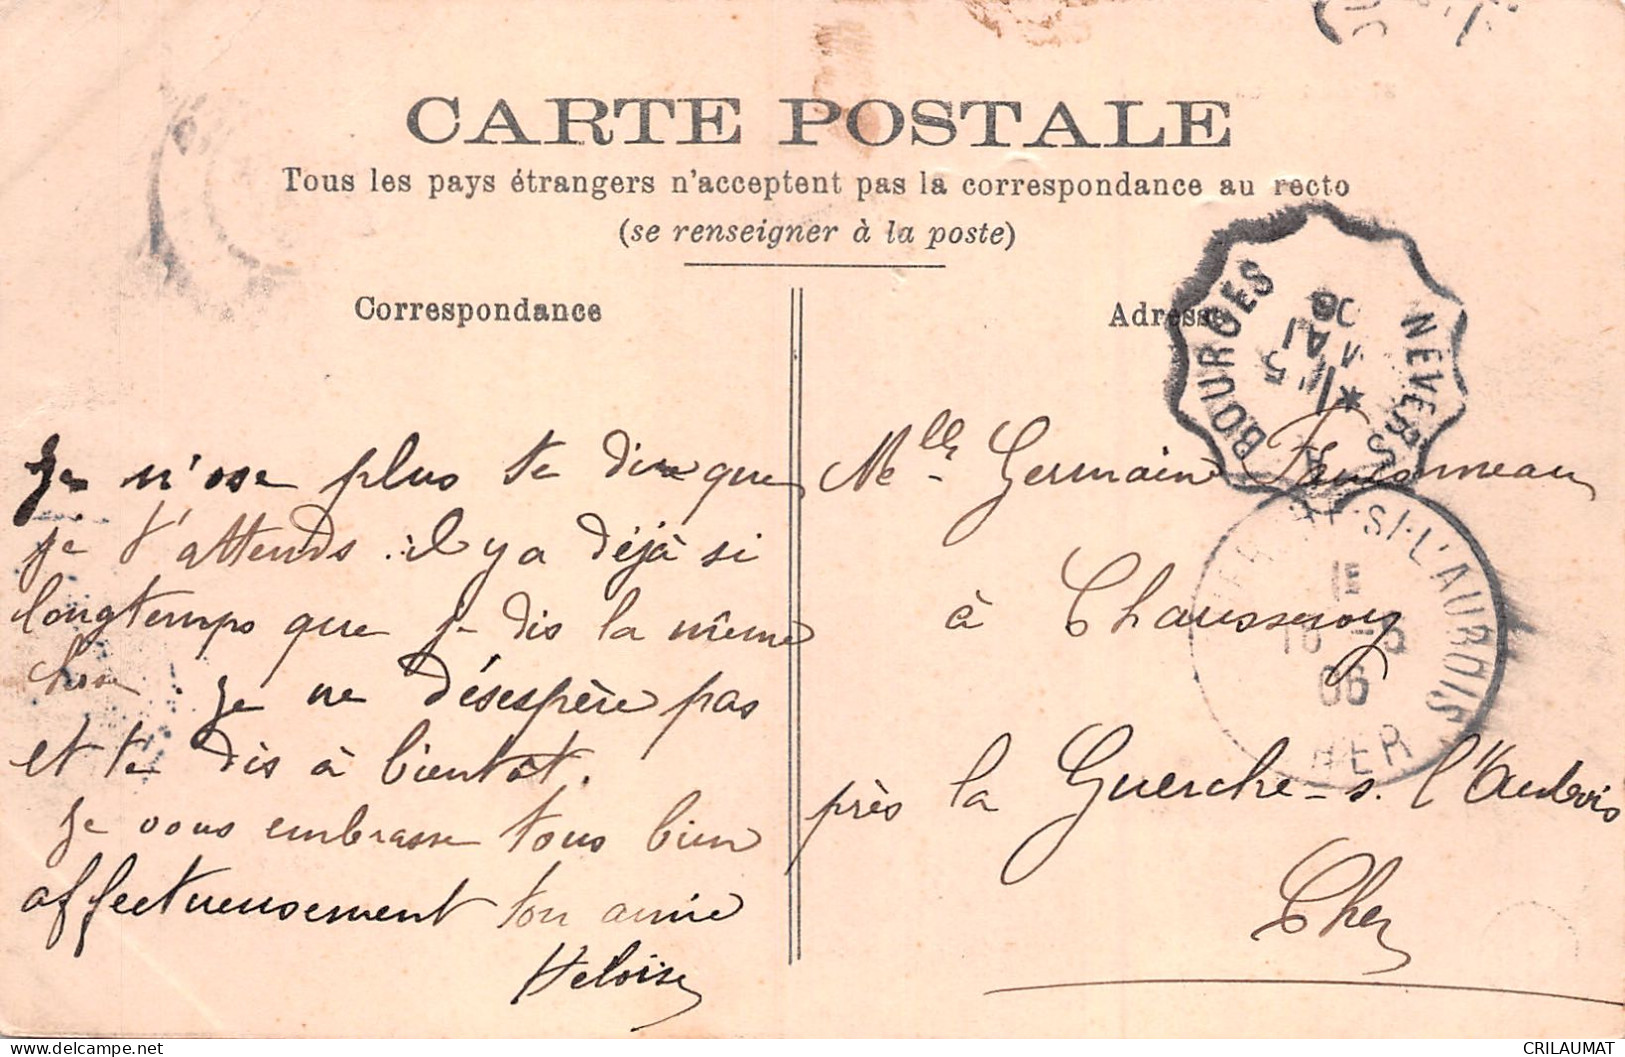 CARTE POSTALE
Tous les pays étrangers n'acceptent pas la correspondance au recto
(se renseigner à la poste)
Correspondance
Je n'ose plus te dire que
je t'attends. il y a déjà si
longtemps que je dis la même
chose je ne désespère pas
et te dis à bientôt.
Je vous embrasse tous bien
affectueusement ton amie
Héloïse
Adresse
BOURGES NEVERS
5
06
Melle Germaine
à Chausseroy
près la Guerche-s. l'Aubois
Cher
ST-L'AUBOIS
16 -5
06
CHER
CRILAUMAT